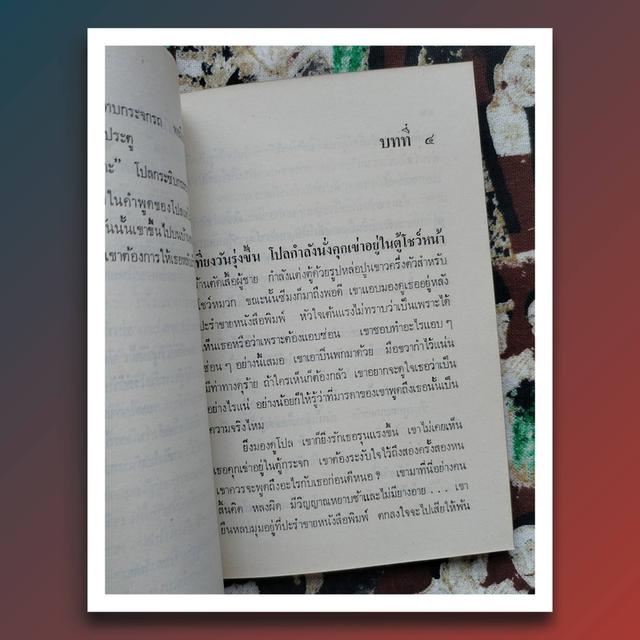 าบกระจกรถ
ประตู
ะ” โปลกระซิบกระ
ยในคำพูดของโปล
ันนั้นเขาขึ้นไปบน
เขาต้องการให้เธอ
บทที่ ๔
เที่ยงวันรุ่งขึ้น โปลกำลังนั่งคุกเข่าอยู่ในตู้โชว์หน้า
ร้านตัดเสื้อผู้ชาย กำลังแต่งตู้ด้วยรูปหล่อปูนขาวครึ่งตัวสำหรับ
โชว์หมวก ขณะนั้นซีมงก็มาถึงพอดี เขาแอบมองดูเธออยู่หลัง
ปะรำขายหนังสือพิมพ์ หัวใจเต้นแรงไม่ทราบว่าเป็นเพราะได้
เห็นเธอหรือว่าเพราะต้องแอบซ่อน เขาชอบทำอะไรแอบ ๆ
ซ่อน ๆ อย่างนี้เสมอ เขาเอาปืนพกมาด้วย มือขวากำไว้แน่น
มีท่าทางดุร้าย ถ้าใครเห็นก็ต้องกลัว เขาอยากจะดูใจเธอว่าเป็น
อย่างไรแน่ อย่างน้อยก็ให้รู้ว่าที่มารดาของเขาพูดถึงเธอนั้นเป็น
ความจริงไหม
ยิ่งมองดูโปล เขาก็ยิ่งรักเธอรุนแรงขึ้น เขาไม่เคยเห็น
เธอคุกเข่าอยู่ในตู้กระจก เขาต้องระงับใจไว้ถึงสองครั้งสองหน
เขาควรจะพูดถึงอะไรกับเธอก่อนดีหนอ ? เขามาที่นี่อย่างคน
สิ้นคิด หลงผิด มีวิญญาณหยาบช้าและไม่มียางอาย . . . เขา
ยืนหลบมุมอยู่ที่ปะรำขายหนังสือพิมพ์ ตกลงใจจะไปเสียให้พ้น